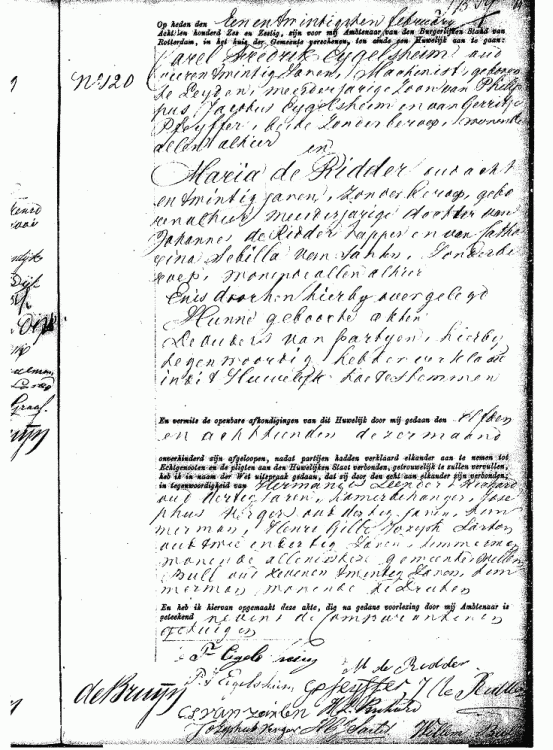 Op heden den Een en twintigsten februarij
Acht-tien honderd Zes en Zestig, zijn voor mij Ambtenaar van den Burgerlijken Stand van
Rotterdam, in het huis der Gemeente verschenen, ten einde een Huwelijk aan te gaan:
No. 120
Carel Fredrik Eygelsheim oud
vieren twintig Jaren, Machenist, geboren
te Leyden, meerderjarige Zoon van Philip
pus Jacobus Eygelsheim en van Gerritje
Pfeyffer, beide Zonder beroep, wonende
allen alhier
en
Maria de Ridder oud acht
en twintig jaren, Zonder beroep, gebo
ren alhier meerderjarige dochter van
Johannes de Ridder tapper en van Catha
rina Sebilla van Santen, Zonder be
roep, wonende allen alhier
En is door hen hierby overgelegd
Hunne geboorte akten
De ouders van partyen, hierby
tegenwoordig hebben verklaard
in dit Huwelyk toe te stemmen
En vermits de openbare afkondigingen van dit Huwelijk door mij gedaan den elfden
en achttienden dezer maand
onverhinderd zijn afgeloopen, nadat partijen hadden verklaard elkander aan te nemen tot
Echtgenooten en de pligten aan den Huwelijken Staat verbonden, getrouwelijk te zullen vervullen,
heb ik in naam der Wet uitspraak gedaan, dat zij door den echt aan elkander zijn verbonden;
in tegenwoordigheid van Hermanus
oud dertig Jaren, Kamerbehanger, Jose
phus Verger oud dertig jaren, tim
merman, Henri Gille Joseph
oud twee en dertig Jaren, timmerman
wonende allen in deze gemeente Willem
Bull oud zeven en twintig Jaren, tim
merman, wonende te
En heb ik hiervan opgemaakt deze akte, die na gedane voorlezing door mij Ambtenaar is
geteekend nevens de Comparanten en
getuigen
M de Ridder
P. J. Eigelsheim G Pfeyffer J de Ridder
de Bruijn
C S van Zanten
Josephus Verger Willem Bull
de Bruijn